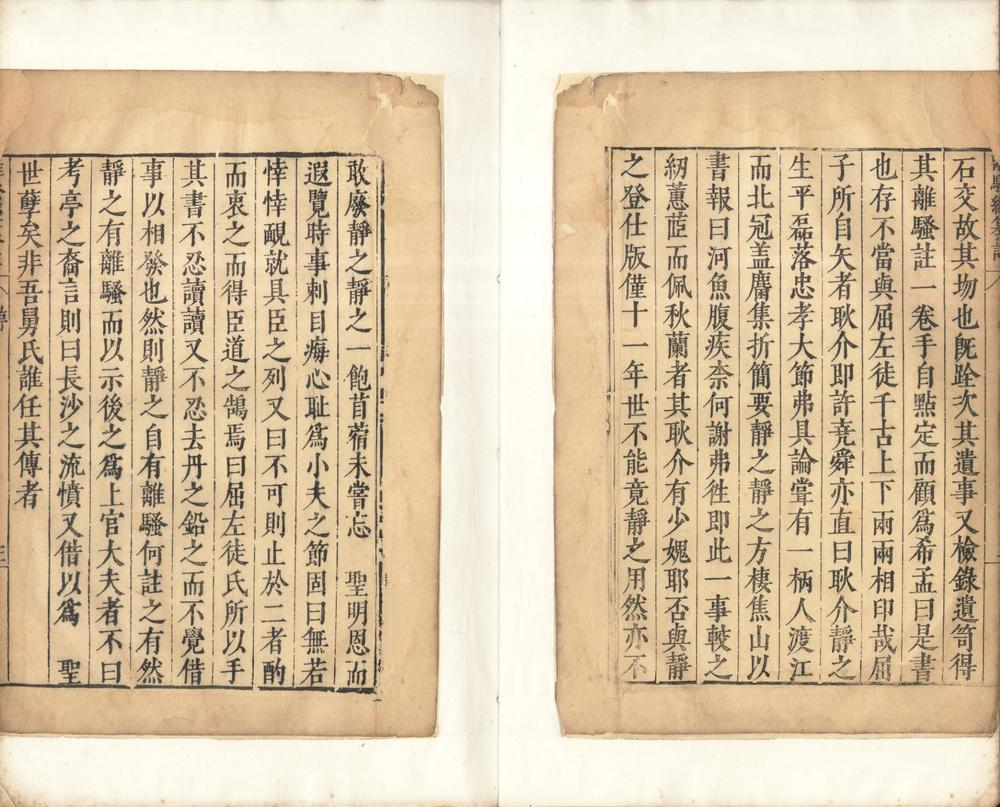 石交故其歾也旣跧次其遺事又檢錄遺笥得
其離騷註一卷手自點定而顧爲希孟曰是書
也存不當與屈左徒千古上下兩兩相印哉屈
子所自矢者耿介即許堯舜亦直曰耿介靜之
生平磊落忠孝大節弗具論甞有一柄人渡江
而北冠盖麕集折簡要靜之靜之方棲焦山以
書報曰河魚腹疾柰何謝弗徃即此一事較之
紉蕙茝而佩秋蘭者其耿介有少媿耶否與靜
之登仕版僅十一年世不能竟靜之用然亦不
敢廢靜之靜之一飽苜蓿未嘗忘　聖明恩而
遐覽時事刺目痗心耻爲小夫之節固曰無若
悻悻覥就具臣之列又曰不可則止於二者酌
而衷之而得臣道之鵠焉曰屈左徒氏所以手
其書不忍讀讀又不忍去丹之鉛之而不覺借
事以相發也然則靜之自有離騷何註之有然
靜之有離騷而以示後之爲上官大夫者不曰
考亭之裔言則曰長沙之流憤又借以爲　聖
世孽矣非吾舅氏誰任其傳者